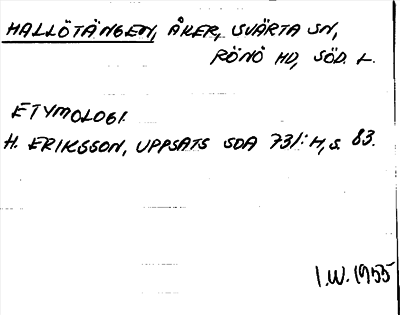 HALLÖTÄNGEN, ÅKER, SVÄRTA SN,
RÖNÖ HD, SÖD. L.
ETYMOLOGI.
H. ERIKSSON, UPPSATS SOA 731:H, S. 83.
I.W. 1955